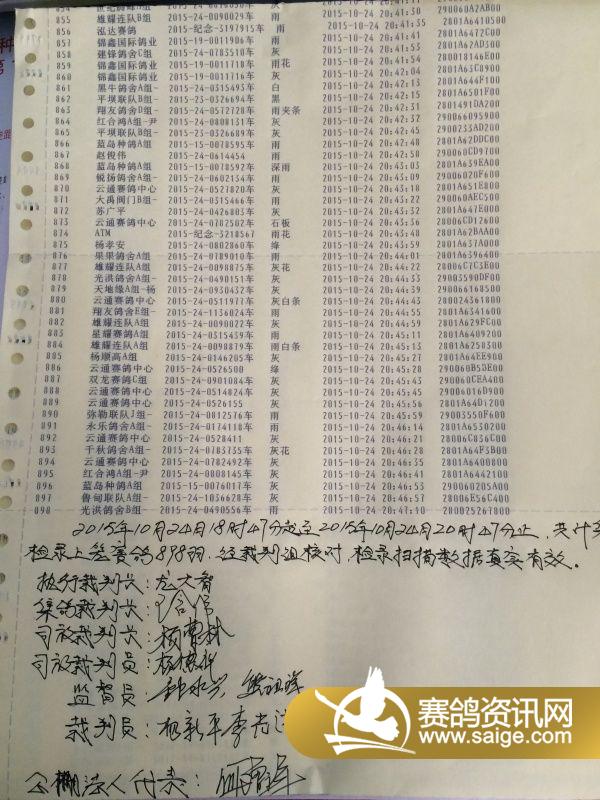 854 世纪鸽舍A组 2015-10-24 20:41:30 290060A2AB00
855 雄耀连队B组 2015-24-0090029 车 雨 2015-10-24 20:41:35 2801A6410500
856 泓达赛鸽 2015-纪念-3197915 车 雨 2015-10-24 20:41:53 2801A6472C00
857 锦鑫国际鸽业 2015-19-0011906 车 雨
858 建锋鸽舍C组 2015-24-0783510 车 灰
859 锦鑫国际鸽业 2015-19-0011718 车 雨花 2015-10-24 20:42:04
860 锦鑫国际鸽业 2015-19-0011716 车 灰 2015-10-24 20:42:13 2801A644F100
861 黑牛鸽舍A组- 2015-24-0315493 车 白 2015-10-24 20:42:15 2801A6501F00
862 平坝联队B组- 2015-23-0326694 车 黑 2015-10-24 20:42:38 2801491DA200
863 翔友鸽舍D组- 2015-24-0572728 车 雨夹条 2015-10-24 20:42:41 290066095900
864 红合鸿A组-尹 2015-24-0808131 车 灰 2015-10-24 20:42:45 2900233AD200
865 平坝联队C组- 2015-23-0326689 车 灰 2015-10-24 20:42:48 2801A62DDC00
866 蓝岛种鸽A组 2015-15-0078595 车 雨 2015-10-24 20:42:51
867 赵俊伟 2015-24-0614454 雨 2015-10-24 20:42:58
868 蓝岛种鸽A组 2015-15-0078592 车 深雨 2015-10-24 20:43:03 2801A639EA00
869 锐扬鸽舍A组- 2015-24-0602134 车 雨 2015-10-24 20:43:09 29006020F600
870 云通赛鸽中心 2015-24-0527820 车 灰 2015-10-24 20:43:18 2801A651E800
871 大禹阀门B组- 2015-24-0315466 车 雨 2015-10-24 20:43:22 290060AEC500
872 苏广平 2015-24-0426803 车 灰 2015-10-24 20:43:32 2801A647E000
873 云通赛鸽中心 2015-24-0782502 车 石板 2015-10-24 20:43:36 28006CD12600
874 ATM 2015-纪念-3218567 车 雨花 2015-10-24 20:43:44 2801A62BAA00
875 杨孝安 2015-24-0802860 车 绛 2015-10-24 20:43:59 2801A637A000
876 果果鸽舍A组 2015-24-0789010 车 雨 2015-10-24 20:44:01 2801A6396400
877 雄耀连队A组 2015-24-0098875 车 灰花 2015-10-24 20:44:22 28006C7C3E00
878 光洪鸽舍A组- 2015-24-0490151 车 灰 2015-10-24 20:44:27 29003590DF00
879 天地缘A组-杨 2015-24-0930432 车 灰 2015-10-24 20:44:39 290066168500
880 云通赛鸽中心 2015-24-0511977 车 灰白条 2015-10-24 20:44:53 280024361800
881 翔友鸽舍E组- 2015-24-1136024 车 雨 2015-10-24 20:44:55 2801A6341600
882 雄耀连队A组 2015-24-0090022 车 灰 2015-10-24 20:44:59 2801A629FC00
883 星耀赛鸽A组 2015-24-0315439 车 雨 2015-10-24 20:45:11 2801A6409200
884 雄耀连队A组 2015-24-0098879 车 雨白条 2015-10-24 20:45:13 2801A6250300
885 杨顺高A组 2015-24-0146205 车 灰 2015-10-24 20:45:27 2801A64EE900
886 云通赛鸽中心 2015-24-0526500 绛 2015-10-24 20:45:28 290060B5DE00
887 双龙赛鸽C组 2015-24-0901084 车 灰 2015-10-24 20:45:37 290060CEA400
888 云通赛鸽中心 2015-24-0514824 车 灰 2015-10-24 20:45:42 290060160900
889 云通赛鸽中心 2015-24-0526155 灰 2015-10-24 20:45:56 2801A64D1200
890 弥勒联队J组- 2015-24-0812576 车 雨 2015-10-24 20:45:59 29003550F600
891 永乐鸽舍A组- 2015-24-0174118 车 雨 2015-10-24 20:46:14 2801A6530200
892 云通赛鸽中心 2015-24-0528411 灰 2015-10-24 20:46:21 28006C836C00
893 千秋鸽舍A组- 2015-24-0783735 车 灰花 2015-10-24 20:46:28 2801A64F3B00
894 云通赛鸽中心 2015-24-0782492 车 灰 2015-10-24 20:46:35 2801A6400800
895 红合鸿A组-尹 2015-24-0808145 车 灰 2015-10-24 20:46:41 2801A6442100
896 蓝岛种鸽A组 2015-15-0076017 车 灰 2015-10-24 20:46:53 290060205A00
897 鲁甸联队A组- 2015-24-1036628 车 灰 2015-10-24 20:46:57 28006E56C400
898 光洪鸽舍B组- 2015-24-0490556 车 雨 2015-10-24 20:47:01 280025267800
2015年10月24日18时47分起至2015年10月24日20时47分止,共计
检录上笼赛鸽898羽,经裁判组核对,检录扫描数据真实有效。
执行裁判长:龙大智
集鸽裁判长:
司放裁判长:
司放裁判员:
监督员:
裁判员:
法人代表:
赛鸽资讯网
www.saige.com